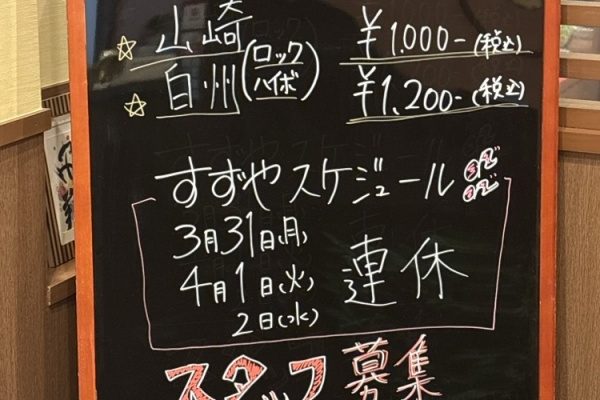 山崎 (ロック ¥1.000-(税込)
白州 ハイボ) ¥1,200-(税込)
すずやスケジュール
3月31日(月)
4月1日(火) 連休
2日(水)
スタッフ募集